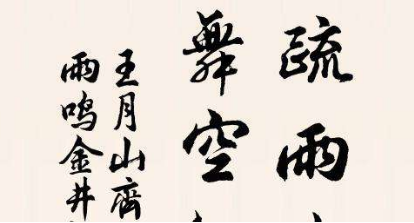 疏雨
舞空
王月山齊
雨鸣金井